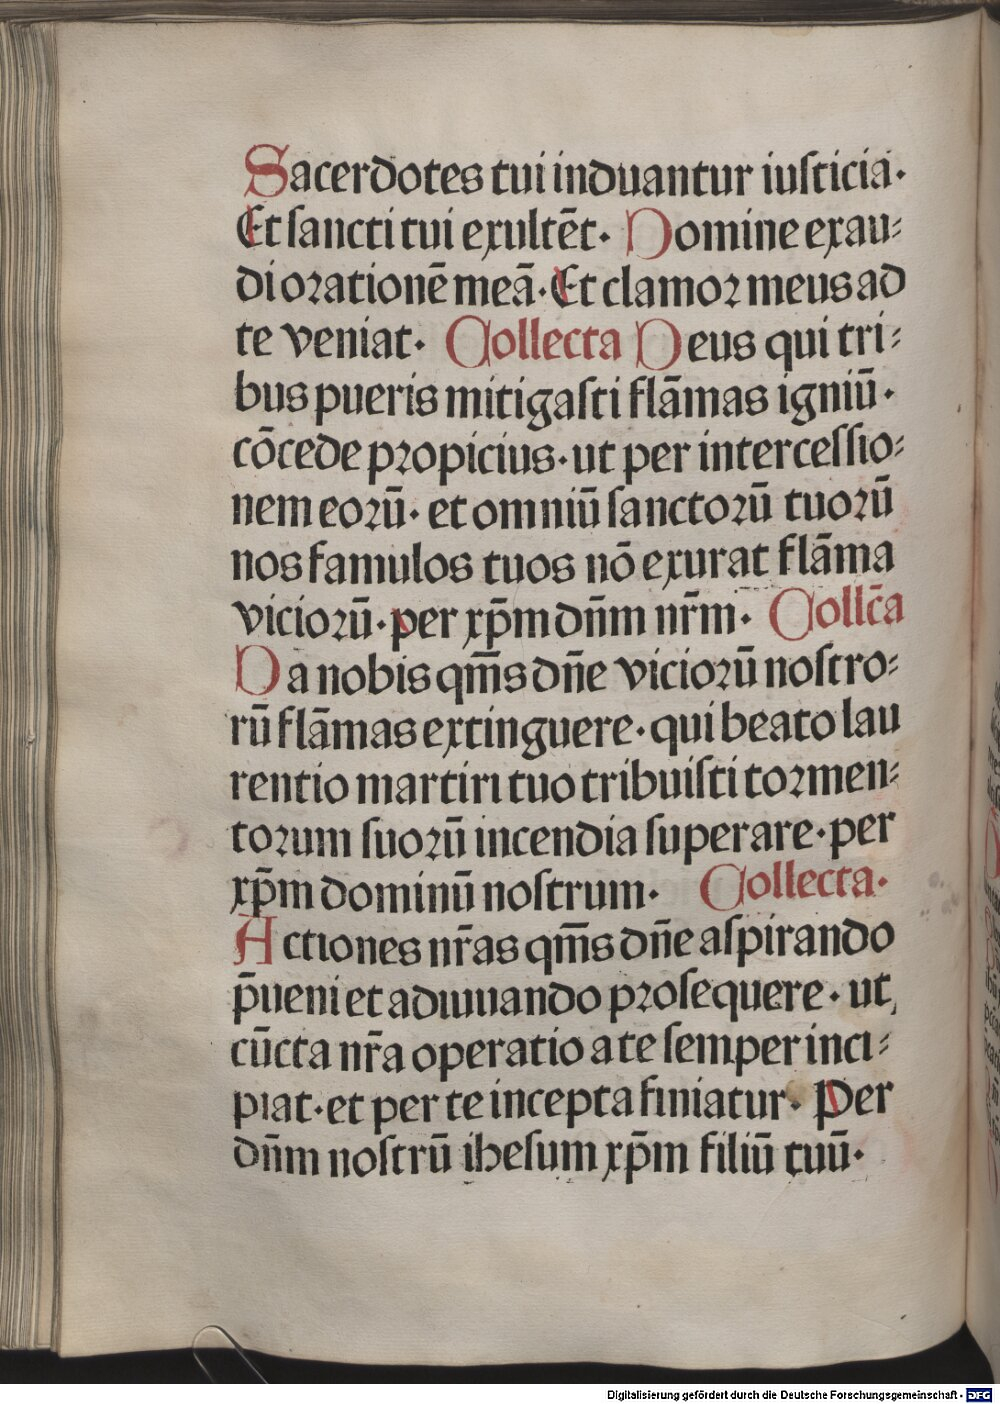 Sacerdotes tui induantur iusticia·
Et sancti tui exultēt· Domine exau-
di orationē meā· Et clamor meus ad
te veniat· Collecta Deus qui tri-
bus pueris mitigasti flāmas igniū·
cōcede propicius· ut per intercessio-
nem eorū· et omniū sanctorū tuorū
nos famulos tuos nō exurat flāma
viciorū· per xp̄m dn̄m nr̄m· Collc̄a
Da nobis qm̄s dn̄e viciorū nostro-
rū flāmas extinguere· qui beato lau
rentio martiri tuo tribuisti tormen-
torum suorū incendia superare· per
xp̄m dominū nostrum· Collecta·
Actiones nr̄as qm̄s dn̄e aspirando
p̄ueni et adiuuando prosequere· ut
cūcta nr̄a operatio a te semper inci-
piat· et per te incepta finiatur· Per
dn̄m nostrū ihesum xp̄m filiū tuū·
Digitalisierung gefördert durch die Deutsche Forschungsgemeinschaft - DFG